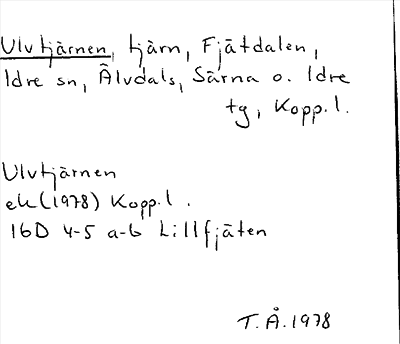 Ulvtjärnen, tjärn, Fjätdalen,
Idre sn, Älvdals, Särna o. Idre
tg, Kopp.l.
Ulvtjärnen
ek (1978) Kopp.l.
16D 4-5 a-b Lillfjäten
T.Å.1978